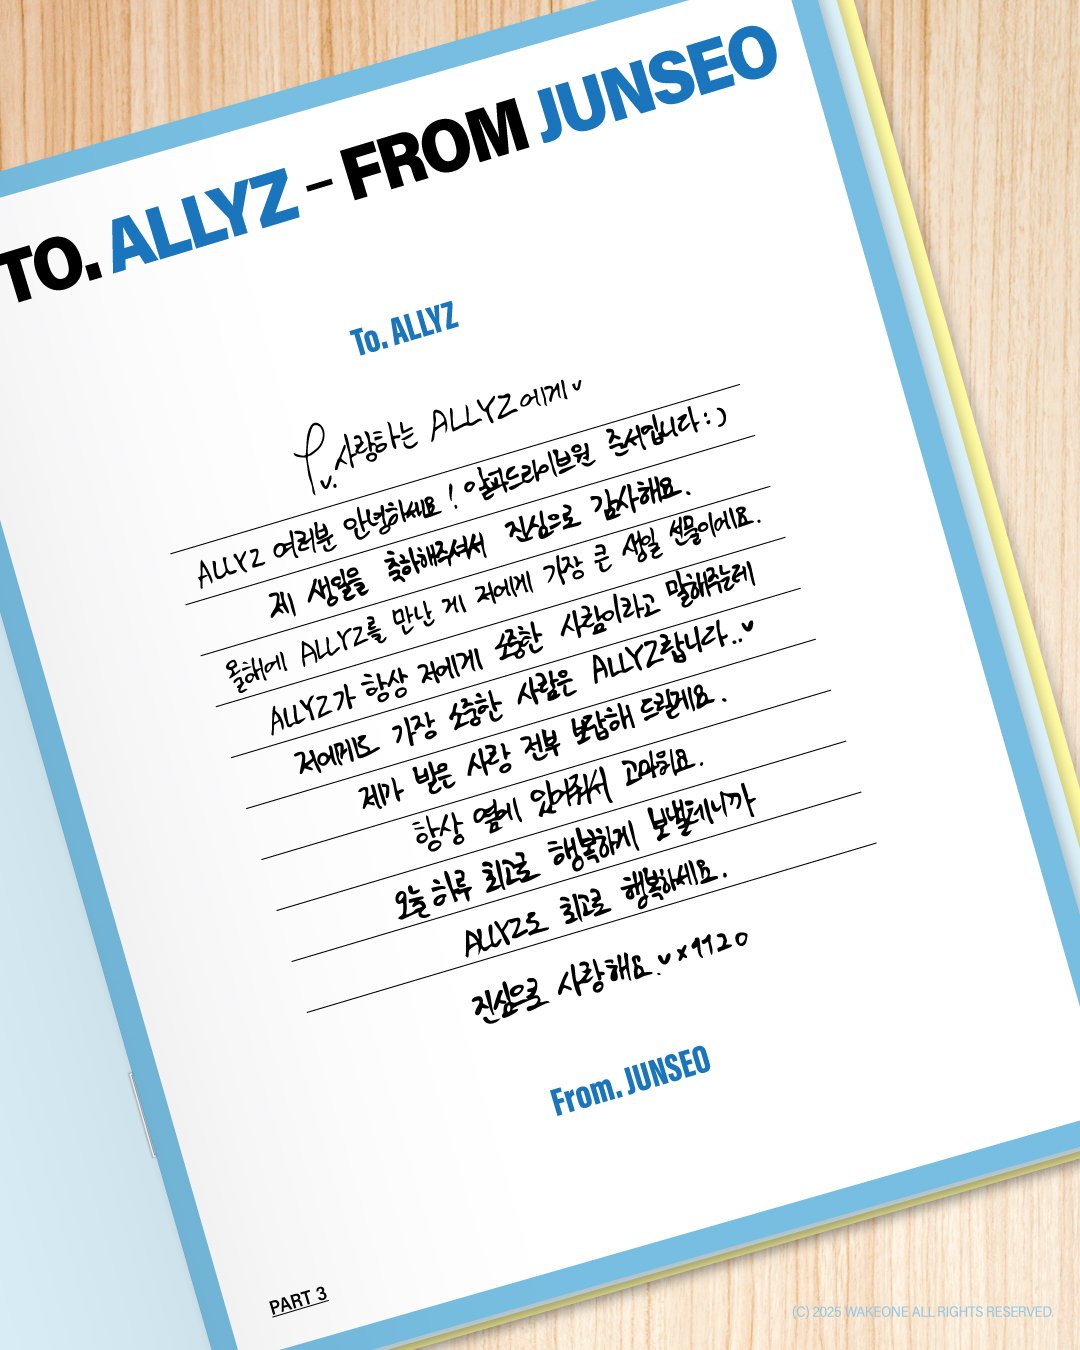 TO. ALLYZ – FROM JUNSEO
To. ALLYZ
P.s. 사랑하는 ALLYZ에게
ALLYZ 여러분 안녕하세요! 알파드라이브원 준서입니다:)
제 생일을 축하해주셔서 진심으로 감사해요.
올해에 ALLYZ를 만난 게 저에게 가장 큰 생일 선물이에요.
ALLYZ가 항상 저에게 소중한 사람이라고 말해주는데
저에게도 가장 소중한 사람은 ALLYZ랍니다..♥
제가 받은 사랑 전부 보답해 드릴게요.
항상 옆에 있어줘서 고마워요.
오늘 하루 최고로 행복하게 보낼테니까
ALLYZ도 최고로 행복하세요.
진심으로 사랑해요.♥×1120
From. JUNSEO
PART 3
(C) 2025 WAKEONE ALL RIGHTS RESERVED.